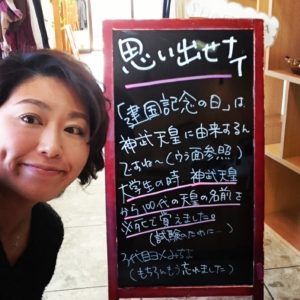 思い出せナイ
「建国記念の日」は
神武天皇に由来するん
ですね〜(ウラ面参照)
大学生の時、神武天皇
から100代の天皇の名前を
必死で覚えました。
(試験のために…)
(もちろんもう忘れました)